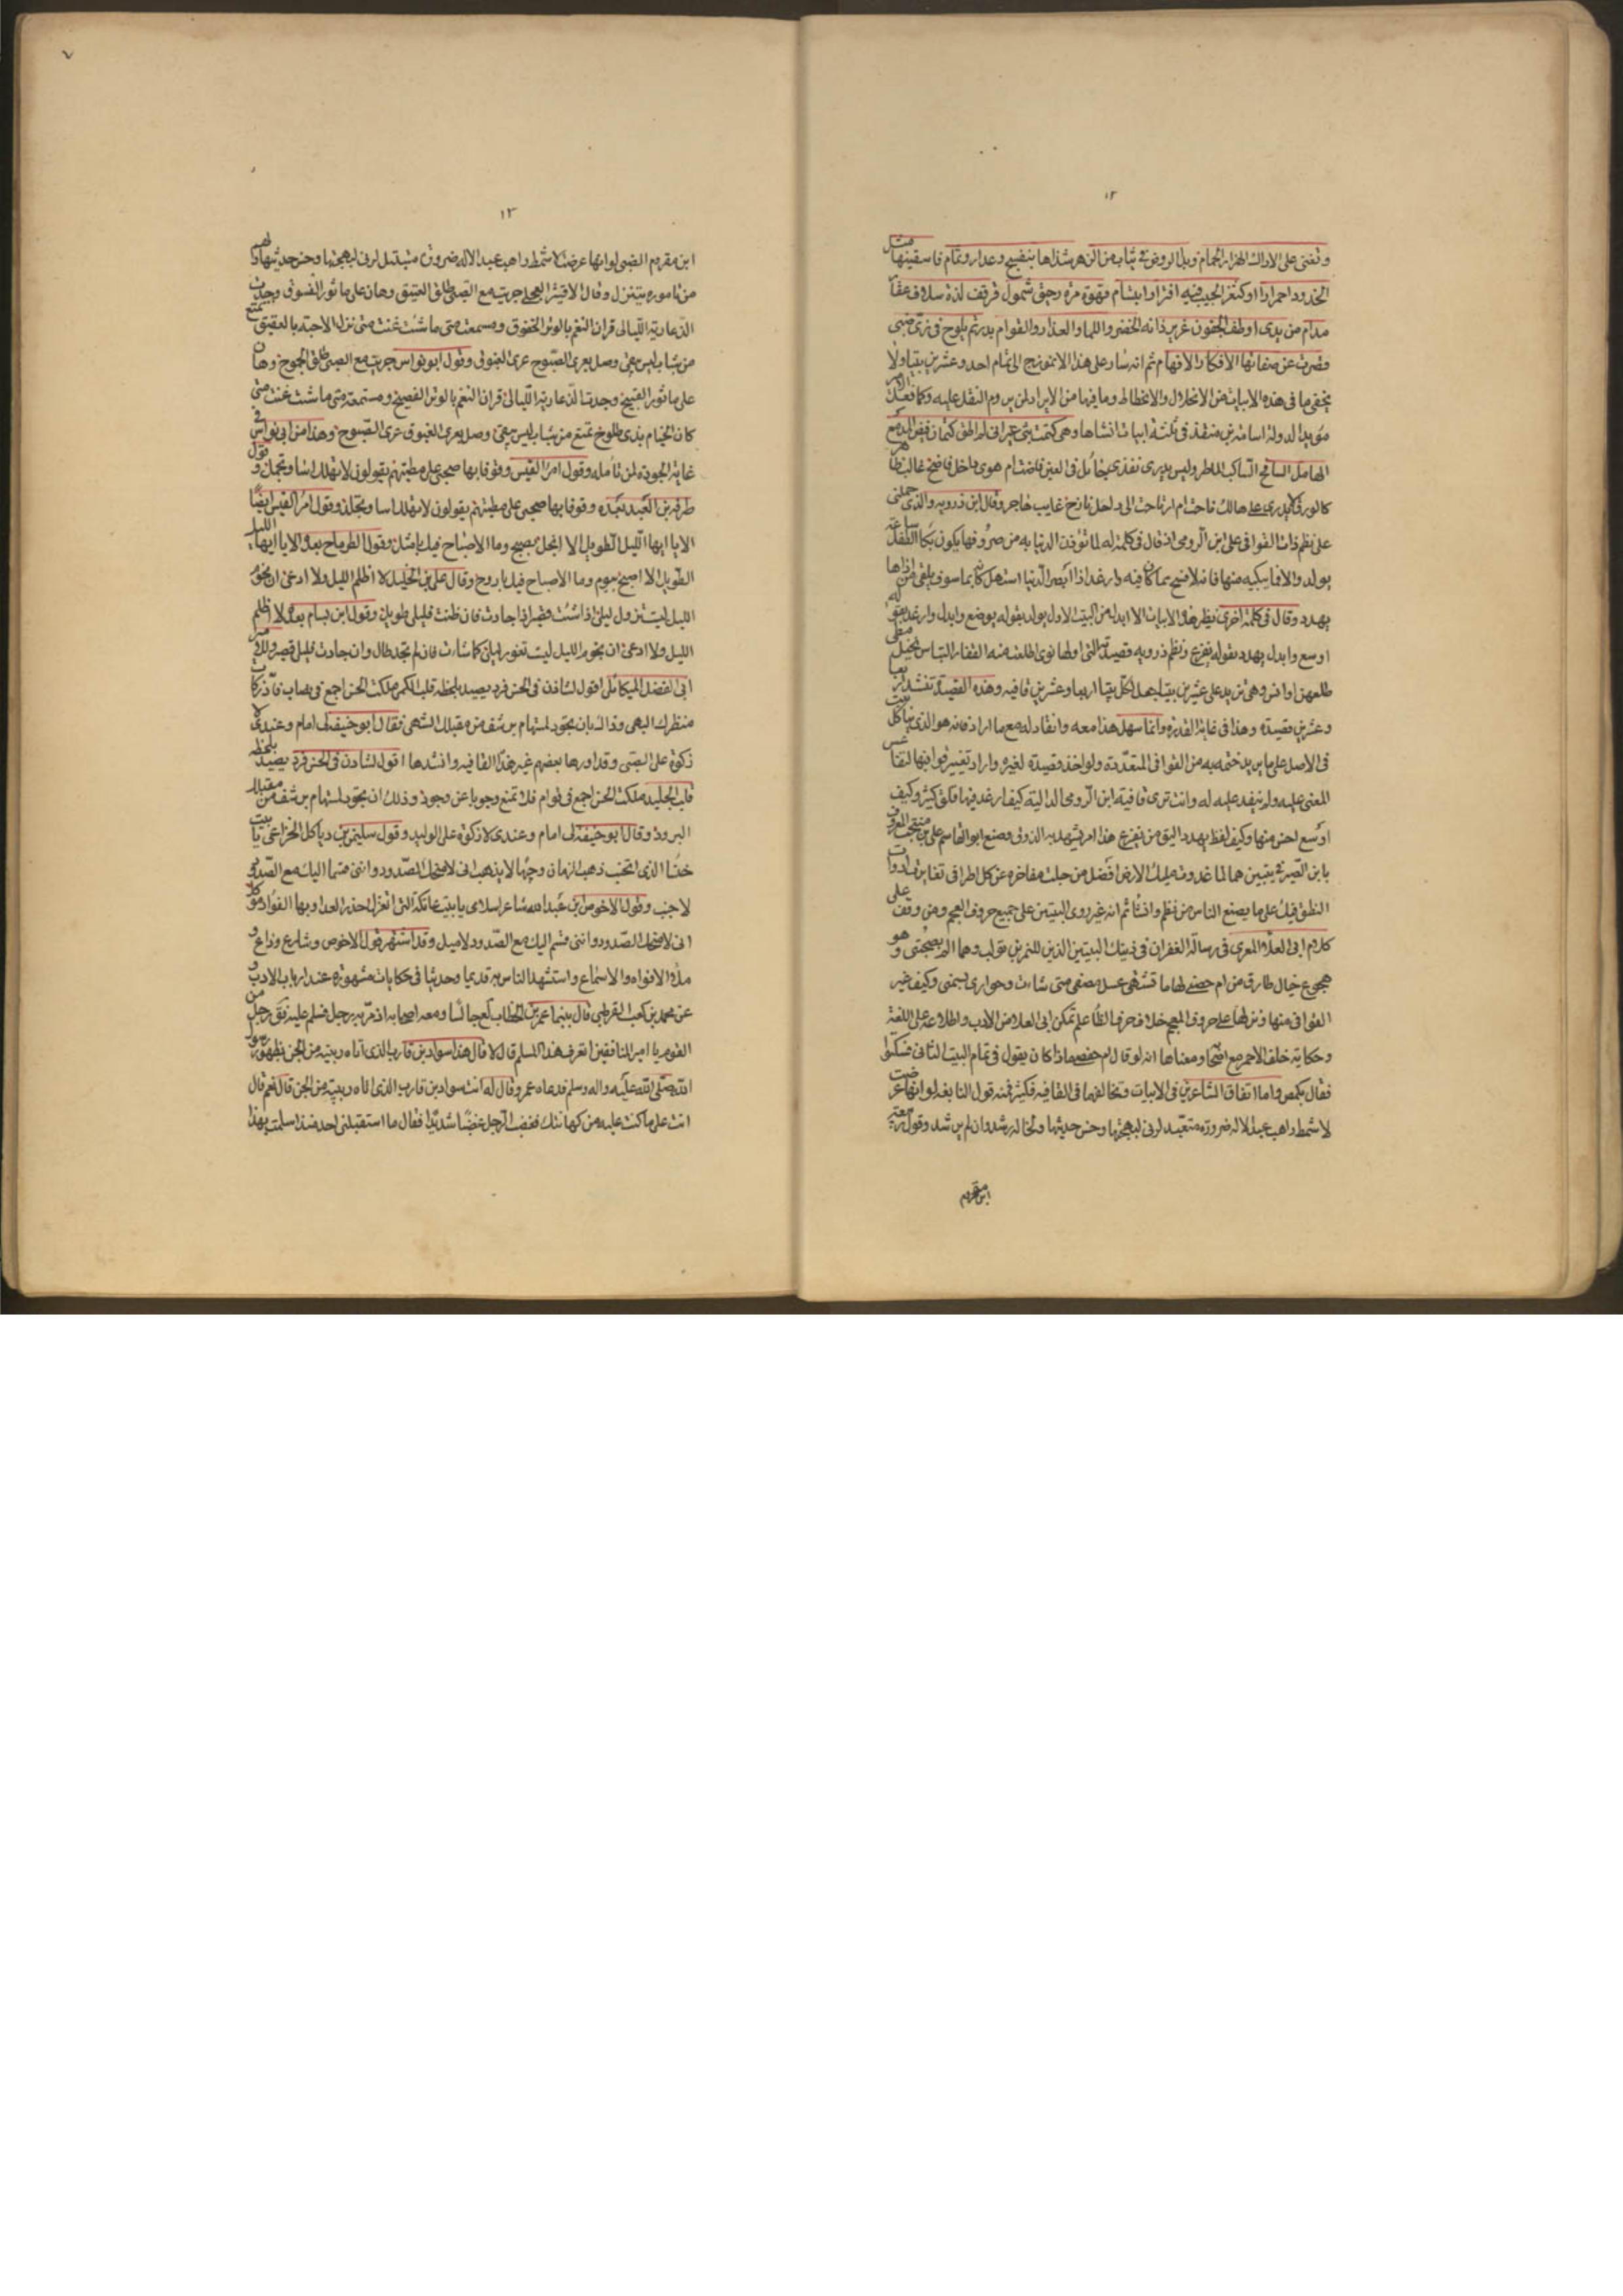 ١٢
وتغنى على الاراك الهزار الحمام وبدا الروض في ثياب من الزهر شذاها بنفسج وعذار وتمام فاسقينها مثل
الخدود احمرارا او كثغر الحبيب فيه افترار ابتسام قهوة مزة رحيق شمول قرقف لذة سلاف عقار
مدام من يدي اوطف الجفون غرير ذاته الخضر واللما والعذار والقوام بدر تم يلوح في زي ظبي
قصرت عن صفاتها الافكار والافهام ثم انه سار على هذا الانموذج الى تمام احد وعشرين بيتا ولا
يخفى ما في هذه الابيات من الانحلال والانحطاط وما فيها من الايراد لمن يروم النقد عليه وكما فعل الامير
مؤيد الدولة اسامة بن منقذ في ثلثة ابيات انشاها وهي كتمت بثي غير اني لم اطق كتمان فيض المدمع
الهامل السافح الساكب الماطر وليس يدري نفذي يخائل في العين فاضت ام هوى داخل فاضح غالب ظاهر
كالورق لا يدري على هالك ناحت ام ارتاحت الى راحل نازح غايب هاجر وقال ابن ذرويه والذي حملني
على نظم ذات القوافي على ابن الرومي اذ قال في كلمة له لما تؤذن الدنيا به من صروفها يكون بكا الطفل ساعة
يولد والا فما يبكيه منها فانها لافسح مما كان فيه وارغد اذا ابصر الدنيا استهل كانه بما سوف يلقى من اذاها
يهدد وقال في كلمة اخرى نظير هذه الابيات الا ابدله من البيت الاول يولد بقوله يوضع وابدل وارغد بقوله
اوسع وابدل يهدد بقوله يفزع ونظم ذرويه قصيدته التي اولها نوى اطلعت منه القفار البسابس نخيل مطي
طلعهن اوانس وهي تزيد على عشرين بيتا جعل لكل بيتا اربعا وعشرين قافيه وهذه القصيدة تنشد اربعا
وعشرين قصيدة وهذا في غاية القدرة وانما سهل هذا معه وانقاد له مع ما اراد فانه هو الذي بنا كل بيت
في الاصل على ما يريد ختمه به من القوافي المتعددة ولو اخذ قصيدة لغيره واراد تغيير قوافيها لتقاعس
المعنى عليه ولم ينقد عليه له وانت ترى قافية ابن الرومي الدالية كيف ارغد فيها قلق كثير وكيف
اوسع احسن منها وكيف لفظ يهدد اليق من يفزع هذا امر يشهد به الذوق وصنع ابو القاسم علي بن منجب المعروف
بابن الصيرفي بيتين هما لما غدوت مليك الارض افضل من جلت مفاخره عن كل اطراء تغايرت ادوات
النطق فيك على ما يصنع الناس من نظم وانشاء ثم انه غير روى البيتين على جميع حروف المعجم ومن وقف على
كلام ابي العلاء المعري في رسالة الغفران في ذينك البيتين الذين للنمر بن تولب وهما الم بصحبتي وهو
هجوع خيال طارق من ام حصن لها ما تشتهي عسل مصفى متى شاءت وحواري بسمن وكيف غير
القوافي منها ونزلها على حروف المعجم خلا حرف الظا علم تمكن ابي العلا من الادب واطلاعه على اللغة
وحكاية خلف الاحمر مع اصحابه ومعناها انه لو قال ام حفص ماذا كان يقول في تمام البيت الثاني فسكتوا
فقال بلمص واما اتفاق الشاعرين في الابيات وتخالفهما في القافيه فكثير فمنه قول النابغه لو انها عرضت
لاشمط راهب عبد الاله صرورة متعبد لرنى لبهجتها وحسن حديثها ولخاله رشدا وان لم يرشد وقول ربيعة
ابن مقروم
١٣
ابن مقروم الضبي لو انها عرضت لاشمط راهب عبد الاله صرورة متبتل لرنى لبهجتها وحسن حديثها ولهم
من تاموره يتنزل وقال الاقيشر العجلي جريت مع الصبي طلق العتيق وهان علي ماثور الفسوق وجدت
الذ عارية الليالي قران النغم بالوتر الخفوق ومسمعة متى ما شئت غنت متى نزل الاحبة بالعقيق تمتع
من شباب ليس يبقى وصل بعرى الصبوح عرى الغبوق وقول ابو نواس جريت مع الصبى طلق الجموح وهان
على ماثور القبيح وجدت الذ عارية الليالي قران النغم بالوتر الفصيح ومستمعة متى ما شئت غنت متى
كان الخيام بذي طلوح تمتع من شباب ليس يبقى وصل بعرى الغبوق عرى الصبوح وهذا من ابي نواس في
غاية الجوده لمن تامله وقول امرأ القيس وقوفا بها صحبي على مطيهم يقولون لا تهلك اسا وتجمل وقول
طرفة بن العبد بعده وقوفا بها صحبي على مطيهم يقولون لا تهلك اسا وتجلد وقول امرأ القيس ايضا
الا يا ايها الليل الطويل الا انجل بصبح وما الاصباح فيك بامثل وقول الطرماح بعده الا يا ايها الليل
الطويل الا اصبح ببوم وما الاصباح فيك باروح وقال علي بن الخليل لا اظلم الليل ولا ادعي ان نجوم
الليل ليست تزول ليلي اذا شئت قصير اذا جادت فان ظنت فليلي طويل وقول ابن بسام بعده لا اظلم
الليل ولا ادعي ان نجوم الليل ليست تغور ليلي كما شاءت فان لم تجد طال وان جادت فليلي قصير وقول
ابي الفضل الميكالي اقول لشادن في الحسن فرد يصيد بلحظه قلب الكمي ملكت الحسن اجمع في نصاب فادّ زكاة
منظرك البهي وذاك بان تجود لمستهام برشف من مقبلك الشهي فقال ابو حنيفة لي امام وعندي لا
زكوة على الصبي وقد اورها بعضهم غير هذه القافيه وانشدها اقول لشادن في الحسن فرد يصيد بلحظه
قلب الجليد ملكت الحسن اجمع في قوام فلا تمنع وجوبا عن وجود وذلك ان تجود لمستهام برشف من مقبلك
البرود وقال ابو حنيفة لي امام وعندي لا زكوة على الوليد وقول سليمن بن دباكل الخزاعي يا بيت
خنسا الذي اتجنب ذهب الزمان وحبها لا يذهب اني لامنحك الصدود وانني قسما اليك مع الصدود
لاجنب وقول الاخوص بن عبد الله شاعر اسلامي يا بيت عاتكة التي اتعزل حذر العدا وبها الفؤاد موكل
اني لامنحك الصدود وانني قسم اليك مع الصدود لاميل وقد اشتهر قول الاخوص وشارع وذاع و
ملأ الافواه والاسماع واستشهد الناس به قديما وحديثا في حكايات مشهورة عند ارباب الادب و
عن محمد بن كعب القرظي قال بينما عمر بن الخطاب جالسا ومعه اصحابه اذ مر به رجل فسلم عليه فقال رجل من
القوم يا امير المتقين اتعرف هذا المسلم قال لا قال هذا سواد بن قارب الذي اتاه رييه من الجن بظهور رسول
الله صلى الله عليه واله وسلم فدعاه عمر وقال له انت سواد بن قارب الذي اتاه رييه من الجن قال نعم قال
انت على ما كنت عليه من كهانتك فغضب الرجل غضبا شديدا فقال ما استقبلني احد منذ اسلمت بهذا